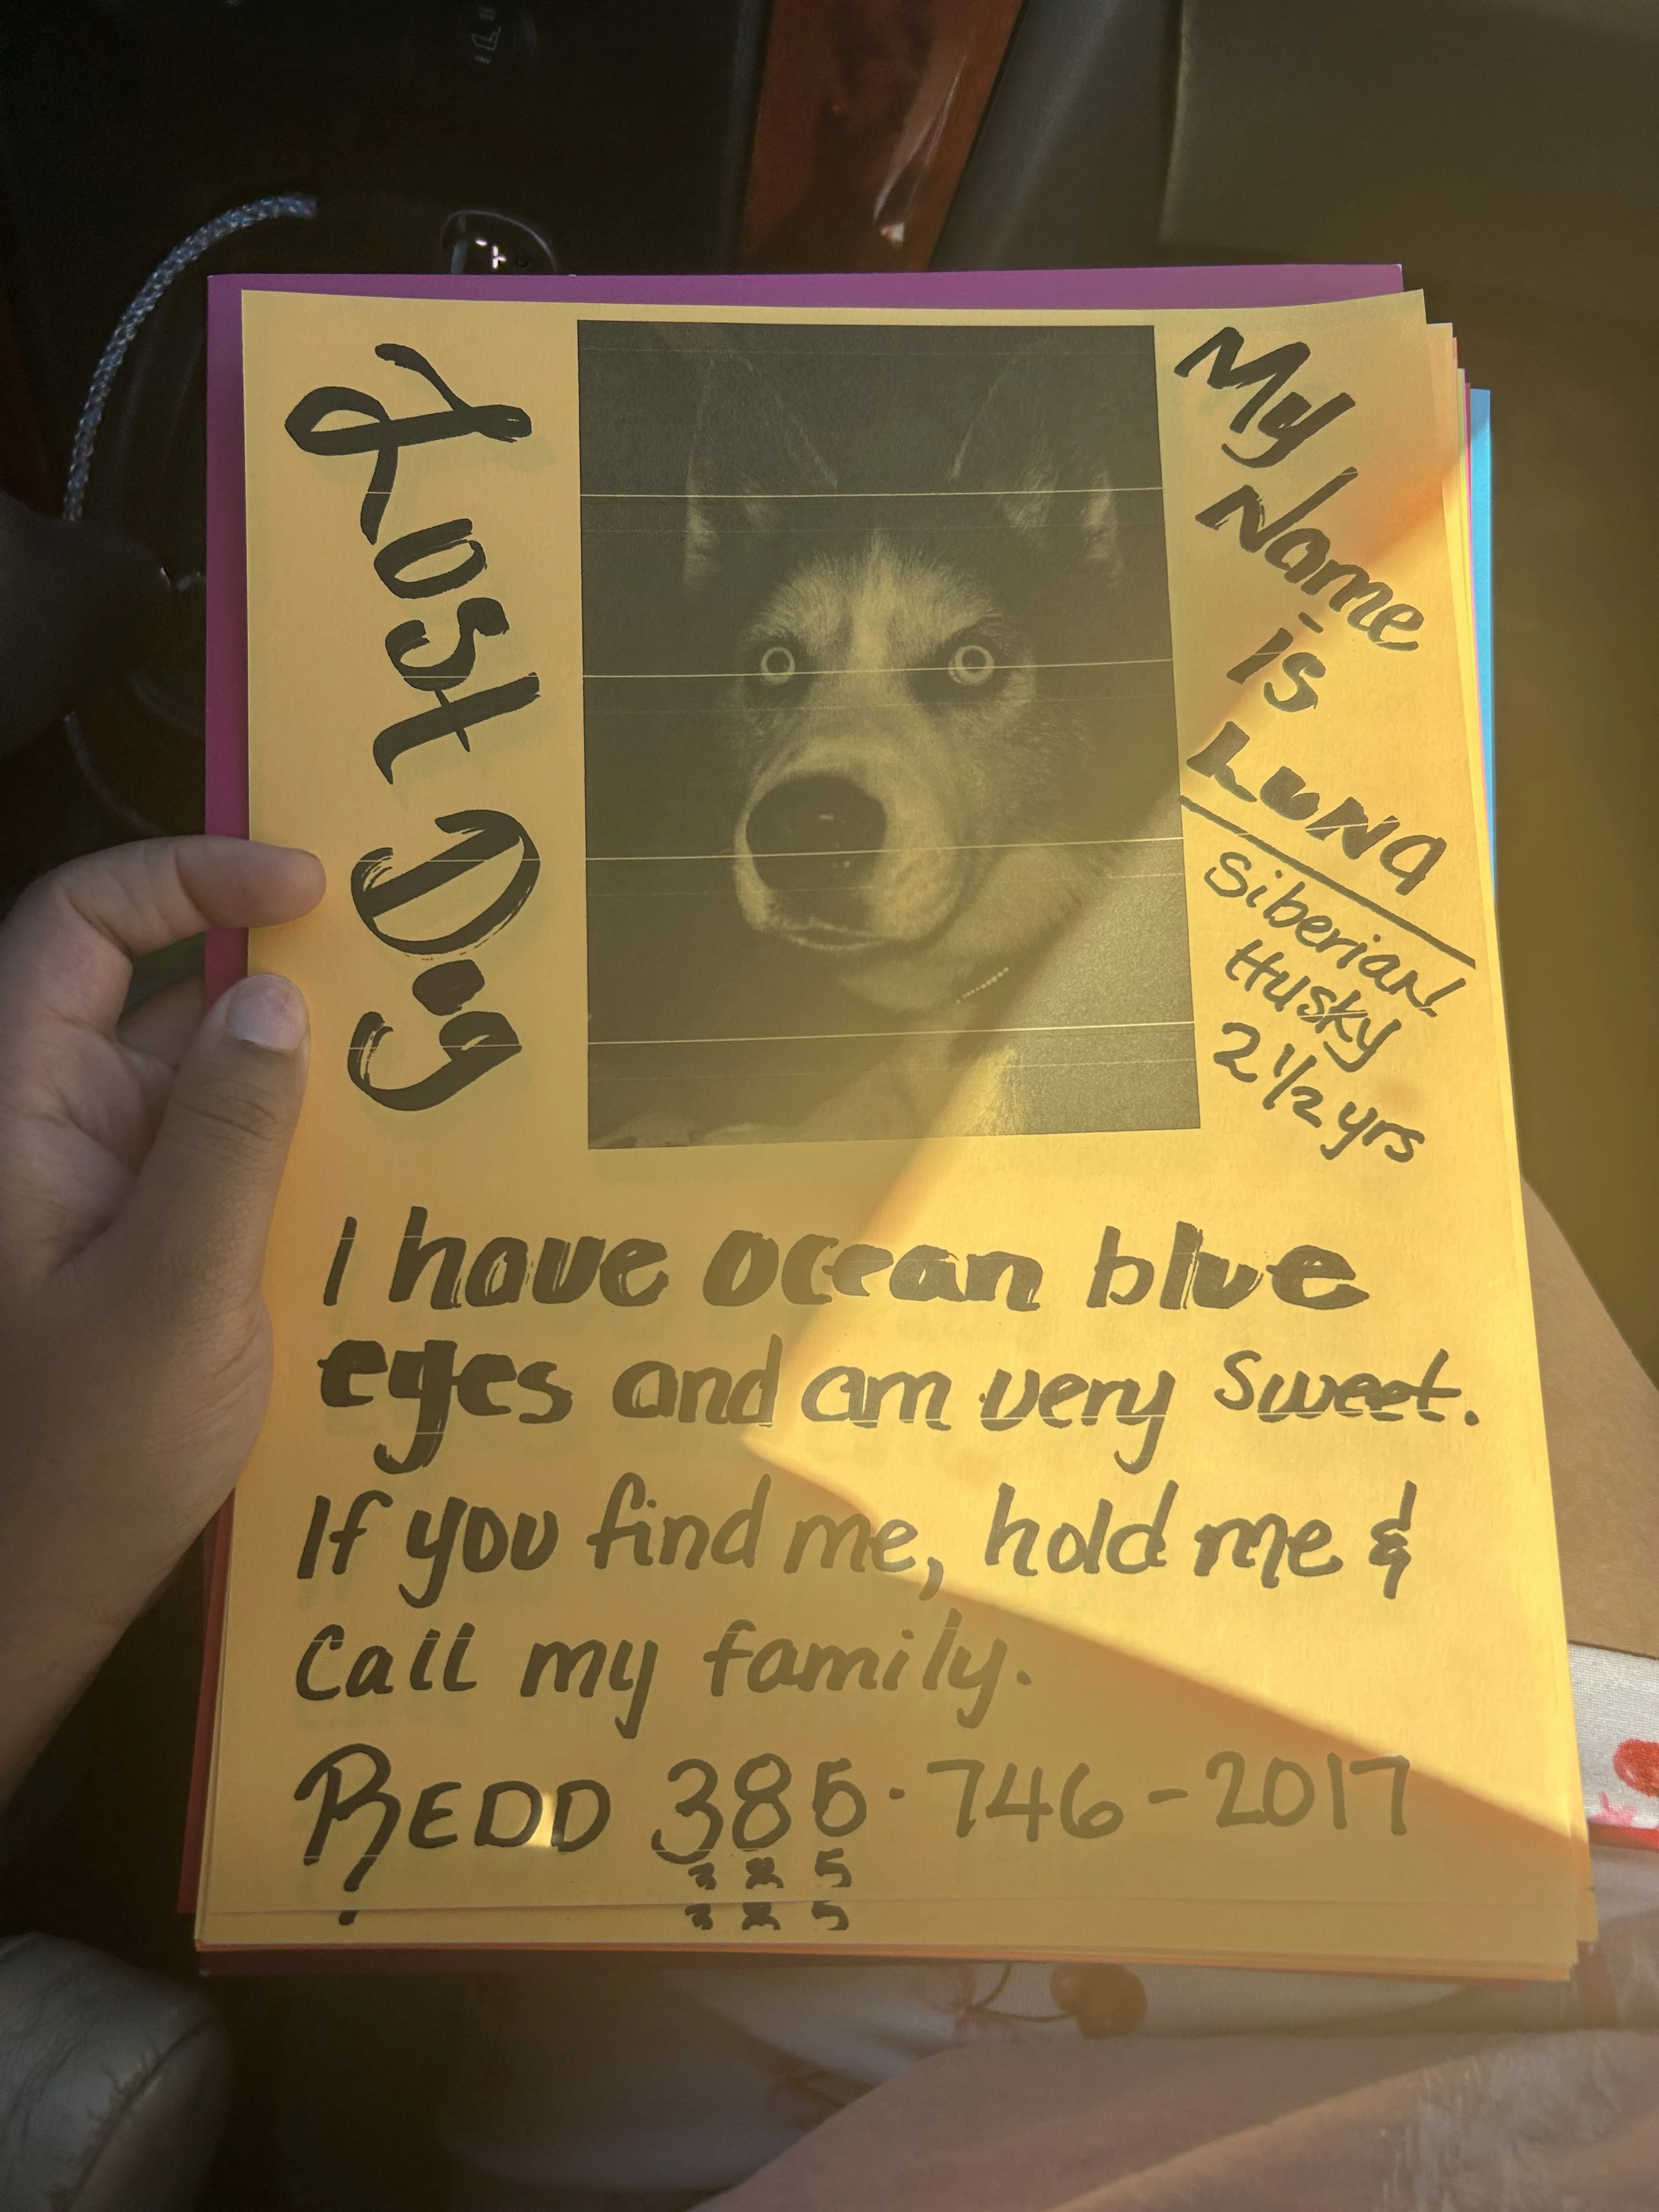 Lost Dog
My
Name
is
LUNA
Siberian
Husky
2 1/2 yrs
I have ocean blue
eyes and am very sweet.
If you find me, hold me &
Call my family.
REDD 385·746-2017
385
385